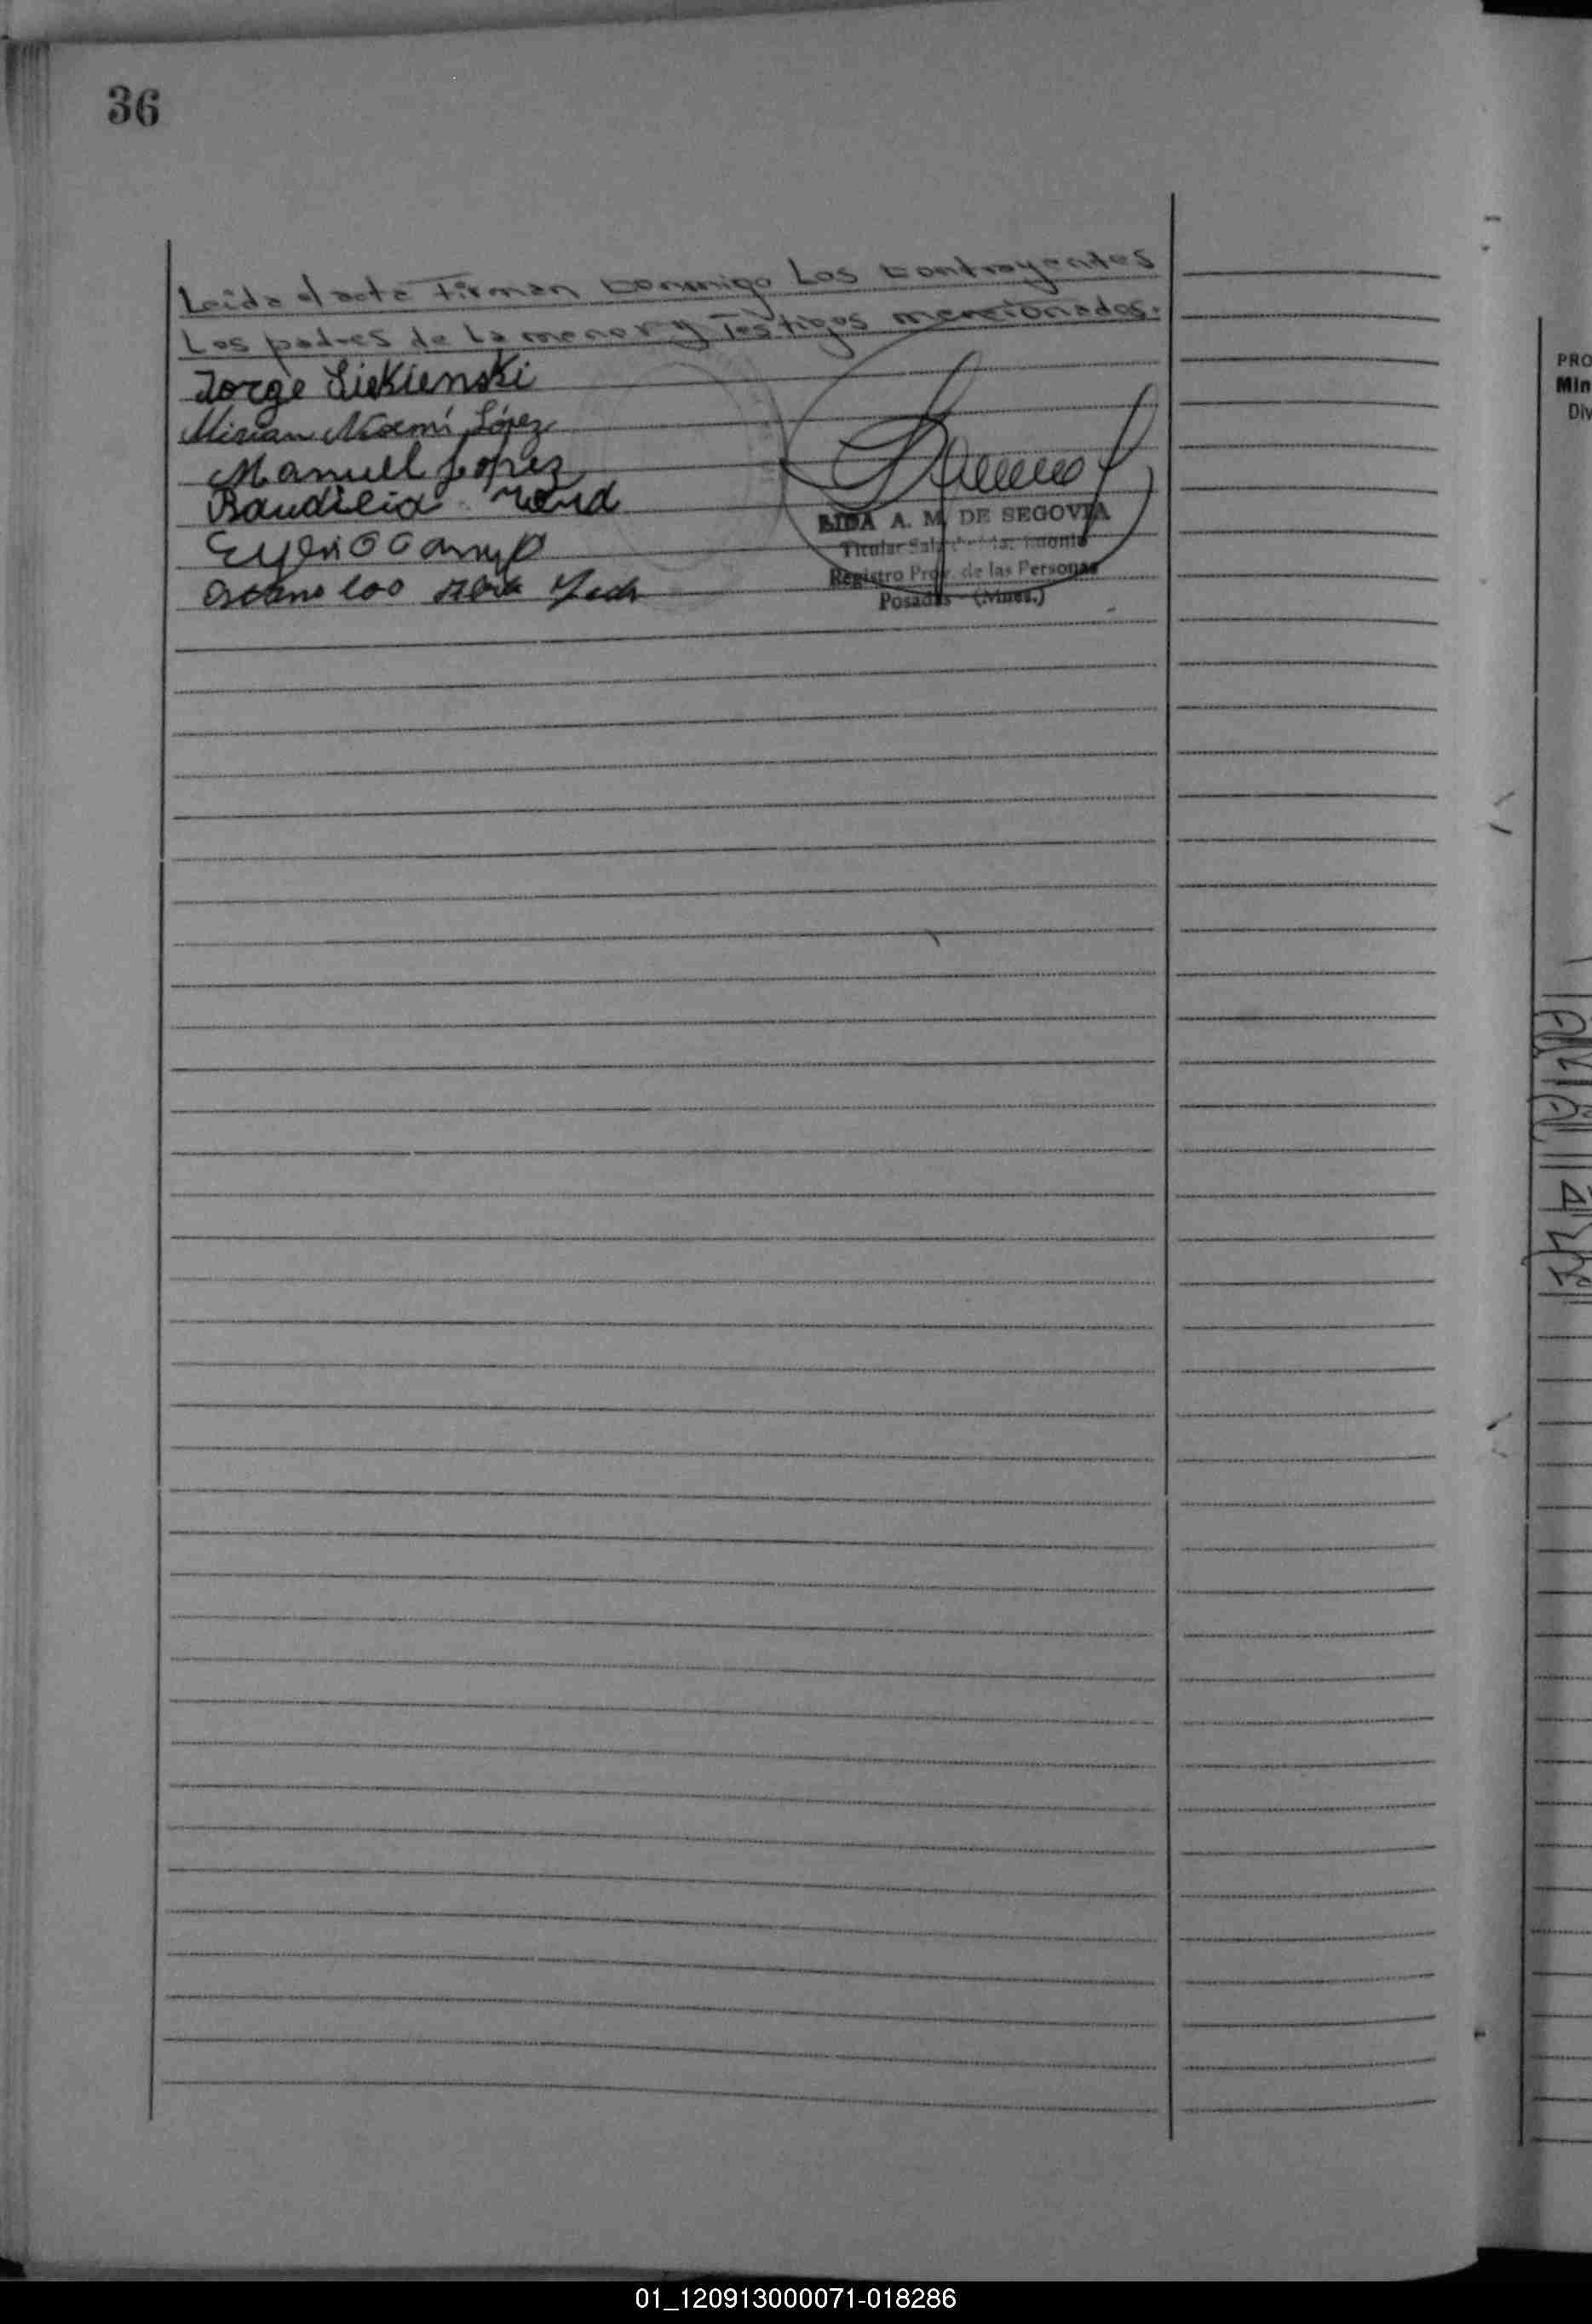 36
Leida el acta firman conmigo Los contrayentes
Los padres de la menor y Testigos mencionados.
Jorge Siekienski
Mirian Noemí López
Manuel Lopez
Baudilia
LIDA A. M. DE SEGOVIA
Titular Sala
Registro Prov. de las Personas
Posadas (Mnes.)
PRO
Min
Div
01_120913000071-018286